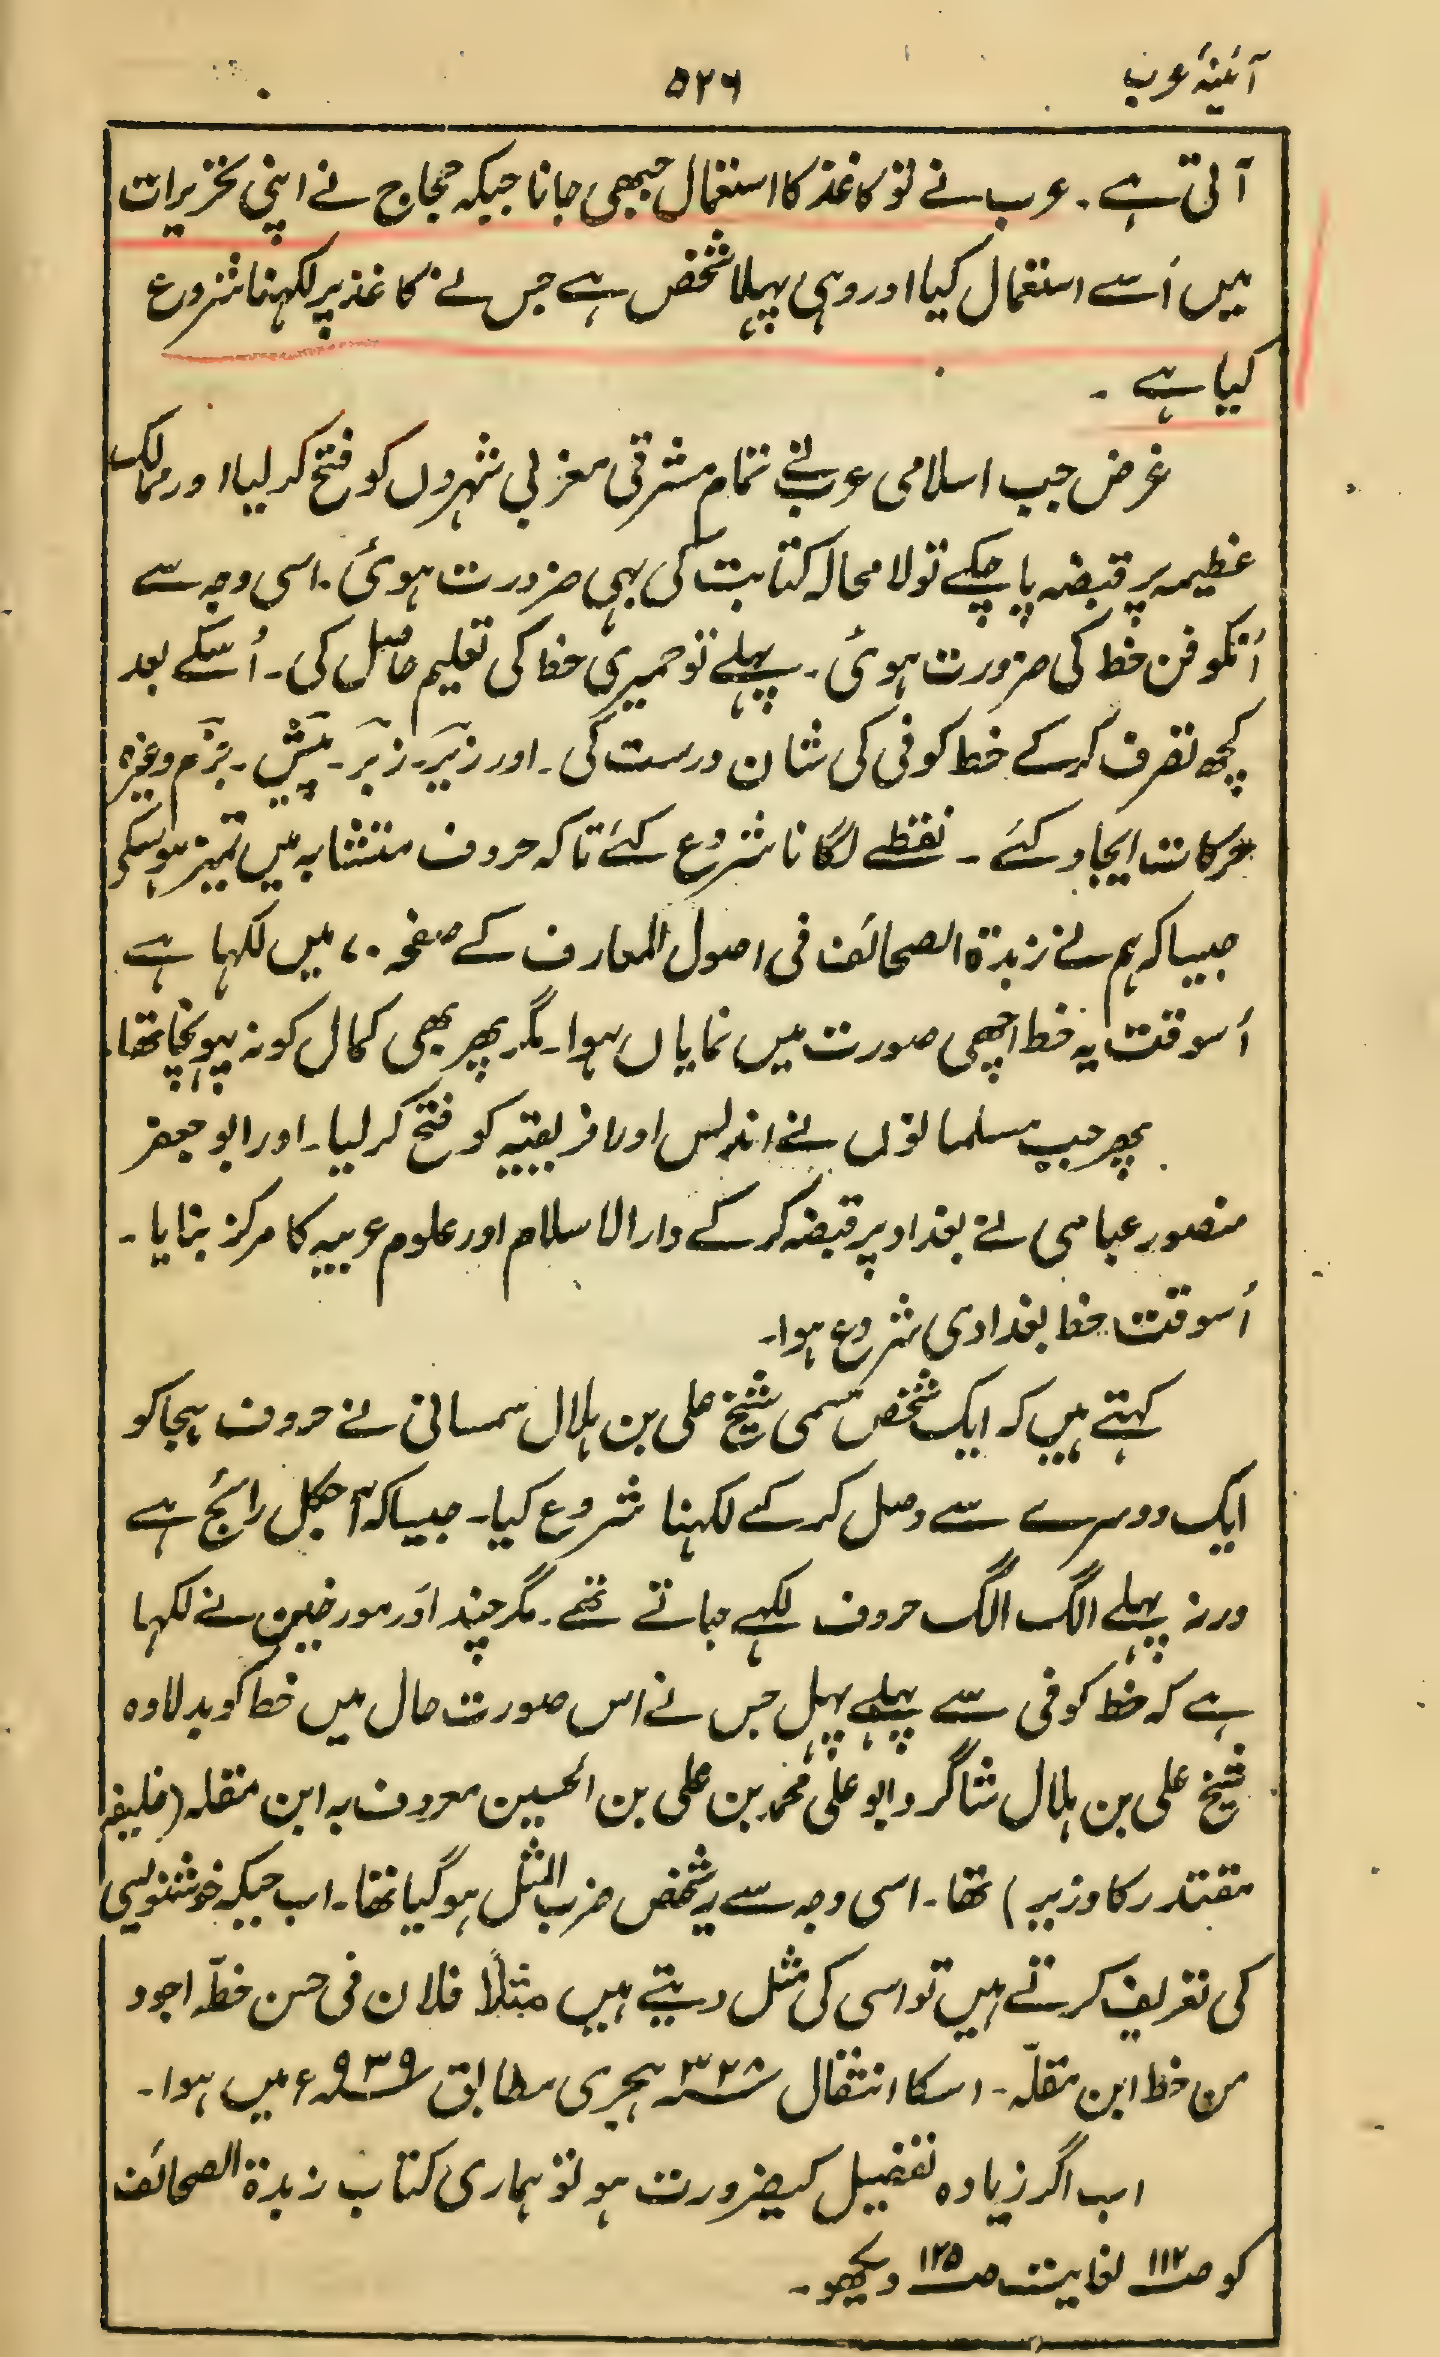 آئینۂ عرب
۵۲۶
آتی ہے ۔ عرب نے تو کاغذ کا استعمال جبھی جانا جبکہ حجاج نے اپنی تحریرات
میں اُسے استعمال کیا اور وہی پہلا شخص ہے جس نے کاغذ پر لکہنا شروع
کیا ہے ۔
غرض جب اسلامی عرب نے تمام مشرقی مغربی شہروں کو فتح کر لیا اور ممالک
عظیمہ پر قبضہ پا چکے تو لا محالہ کتابت کی بہی ضرورت ہوئی ۔ اسی وجہ سے
اُنکو فن خط کی ضرورت ہوئی ۔ پہلے تو حمیری خط کی تعلیم حاصل کی ۔ اُسکے بعد
کچھ تصرف کر کے خط کوفی کی شان درست کی ۔ اور زیَر ۔ زبَر ۔ پیَش ۔ جزَم وغیرہ
حرکات ایجاد کئے ۔ نقطے لگانا شروع کئے تاکہ حروف متشابہ میں تمیز ہو سکے
جیسا کہ ہم نے زبدۃ الصحائف فی اصول المعارف کے صفحہ ۷۰ میں لکہا ہے
اُسوقت یہ خط اچھی صورت میں نمایاں ہوا ۔ مگر پھر بھی کمال کو نہ پہونچا تھا ۔
پھر جب مسلمانوں نے اندلس اور افریقیہ کو فتح کر لیا ۔ اور ابو جعفر
منصور عباسی نے بغداد پر قبضہ کر کے دار الاسلام اور علوم عربیہ کا مرکز بنایا ۔
اُسوقت خط بغدادی شروع ہوا ۔
کہتے ہیں کہ ایک شخص مسمی شیخ علی بن ہلال سمسانی نے حروف ہجا کو
ایک دوسرے سے وصل کر کے لکہنا شروع کیا ۔ جیسا کہ آجکل رائج ہے
ورنہ پہلے الگ الگ حروف لکہے جاتے تھے ۔ مگر چند اَور مورخین نے لکہا
ہے کہ خط کوفی سے پہلے پہل جس نے اس صورت حال میں خط کو بدلا وہ
شیخ علی بن ہلال شاگرد ابو علی محمد بن علی بن الحسین معروف بہ ابن مقلہ (خلیفہ
مقتدر کا وزیر) تھا ۔ اسی وجہ سے یہ شخص ضرب المثل ہو گیا تھا ۔ اب جبکہ خوشنویسی
کی تعریف کرتے ہیں تو اسی کی مثل دیتے ہیں مثلاً فلان فی حسن خطّہ اجود
من خط ابن مقلّہ ۔ اسکا انتقال ۳۲۸ ہجری مطابق ۹۳۹ء میں ہوا ۔
اب اگر زیادہ تفصیل کیضرورت ہو تو ہماری کتاب زبدۃ الصحائف
کو صـ ۱۱۲ لغایت صـ ۱۲۵ دیکھو ۔